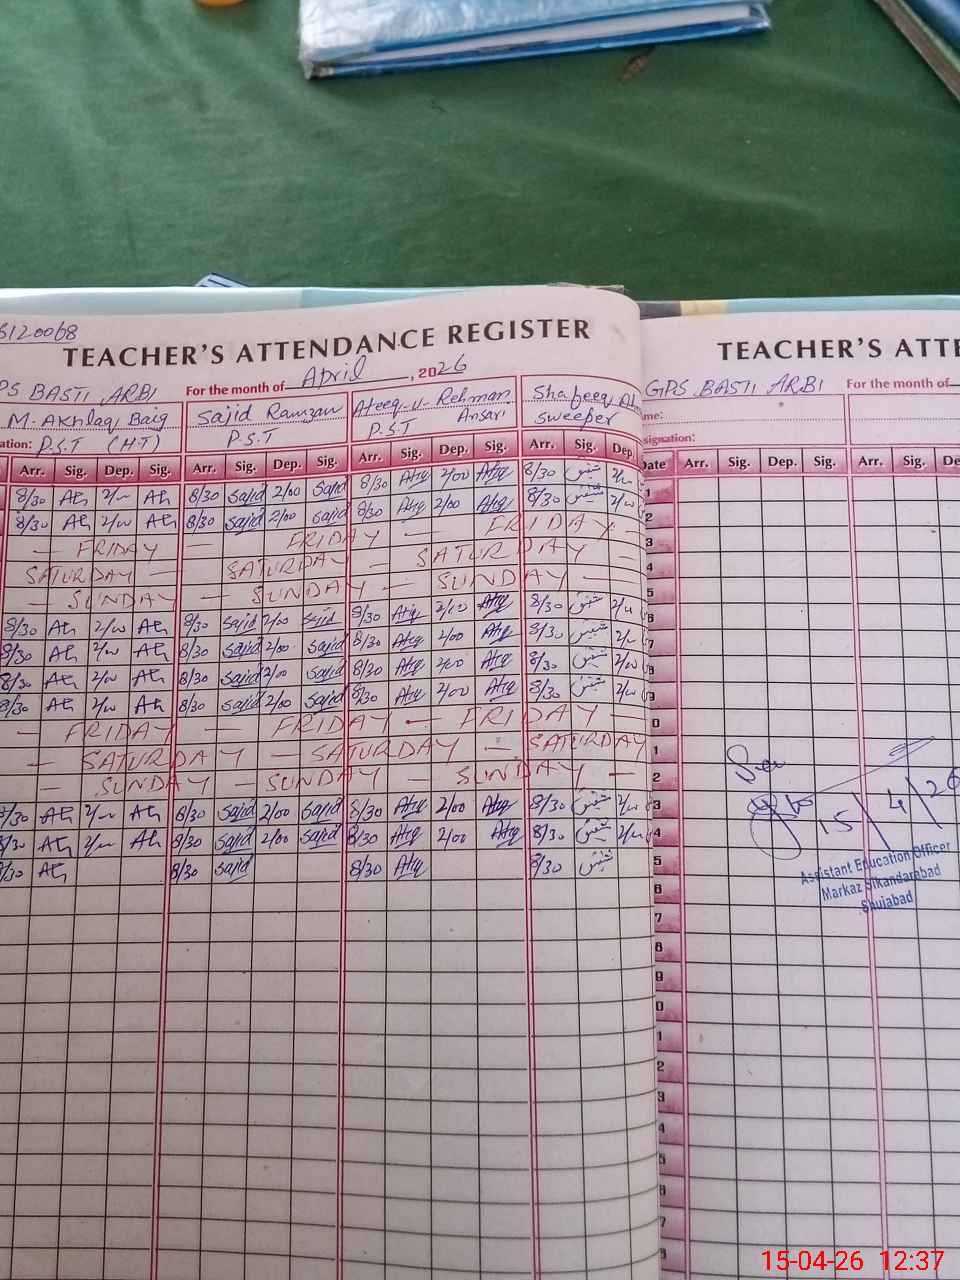 TEACHER'S ATTENDANCE REGISTER
PS BASTI ARBI For the month of April, 2026
M. Akhlaq Baig Sajid Ramzan Ateeq-u-Rehman Ansari Shafeeq
ation: P.S.T (H.T) P.S.T P.S.T Sweeper
Arr. Sig. Dep. Sig. Arr. Sig. Dep. Sig. Arr. Sig. Dep. Sig. Arr. Sig. Dep.
8/30 8/30 Sajid 2/00 Sajid 8/30 Atiq 2/00 Atiq 8/30
8/30 8/30 Sajid 2/00 Sajid 8/30 Atiq 2/00 Atiq 8/30
— FRIDAY — FRIDAY — FRIDAY —
SATURDAY — SATURDAY — SATURDAY —
— SUNDAY — SUNDAY — SUNDAY —
8/30 8/30 Sajid 2/00 Sajid 8/30 Atiq 2/00 Atiq 8/30
8/30 8/30 Sajid 2/00 Sajid 8/30 Atiq 2/00 Atiq 8/30
8/30 8/30 Sajid 2/00 Sajid 8/30 Atiq 2/00 Atiq 8/30
8/30 8/30 Sajid 2/00 Sajid 8/30 Atiq 2/00 Atiq 8/30
— FRIDAY — FRIDAY — FRIDAY —
— SATURDAY — SATURDAY — SATURDAY
— SUNDAY — SUNDAY — SUNDAY —
8/30 8/30 Sajid 2/00 Sajid 8/30 Atiq 2/00 Atiq 8/30
8/30 8/30 Sajid 2/00 Sajid 8/30 Atiq 2/00 Atiq 8/30
8/30 8/30 Sajid 8/30 Atiq 8/30
TEACHER'S ATTE
GPS BASTI ARBI For the month of
me:
signation:
Date Arr. Sig. Dep. Sig. Arr. Sig. De
1
2
3
4
5
6
7
8
9
0
1
2
3
4
5
6
7
8
9
0
1
2
3
4
5
6
7
8
15/4/26
Assistant Education Officer
Markaz Sikandarabad
Shujabad
15-04-26 12:37